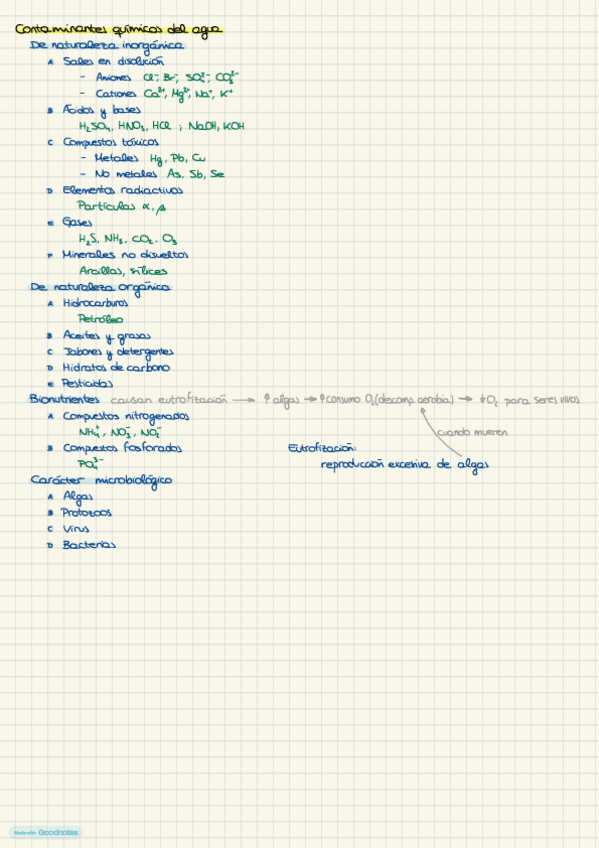 Contaminantes químicos del agua
De naturaleza inorgánica
A Sales en disolución
- Aniones Cl⁻, Br⁻, SO₄²⁻, CO₃²⁻
- Cationes Ca²⁺, Mg²⁺, Na⁺, K⁺
B Ácidos y bases
H₂SO₄, HNO₃, HCl ; NaOH, KOH
C Compuestos tóxicos
- Metales Hg, Pb, Cu
- No metales As, Sb, Se
D Elementos radiactivos
Partículas α, β
E Gases
H₂S, NH₃, CO₂, O₃
F Minerales no disueltos
Arcillas, sílices
De naturaleza orgánica
A Hidrocarburos
Petróleo
B Aceites y grasas
C Jabones y detergentes
D Hidratos de carbono
E Pesticidas
Bionutrientes causan eutrofización → ↑ algas → ↑ consumo O₂ (descomp. aerobia) → ↓ O₂ para seres vivos
A Compuestos nitrogenados
cuando mueren
NH₄⁺, NO₃⁻, NO₂⁻
B Compuestos fosforados
Eutrofización:
PO₄³⁻
reproducción excesiva de algas
Carácter microbiológico
A Algas
B Protozoos
C Virus
D Bacterias
Made with Goodnotes